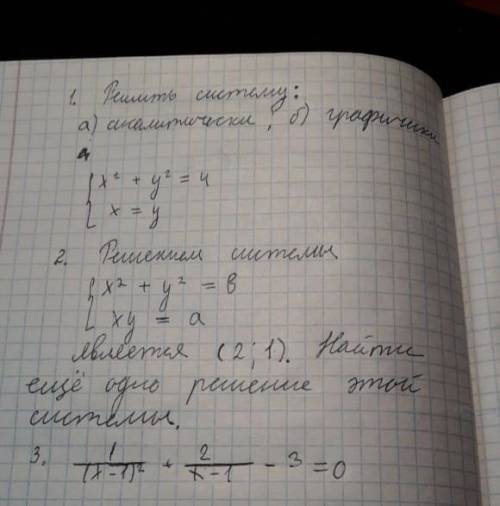 1. Решить систему:
а) аналитически; б) графически
{x² + y² = 4
x = y
2. Решением системы
{x² + y² = в
xy = a
является (2; 1). Найти
ещё одно решение этой
системы.
3. 1/(x-1)² + 2/(x-1) - 3 = 0